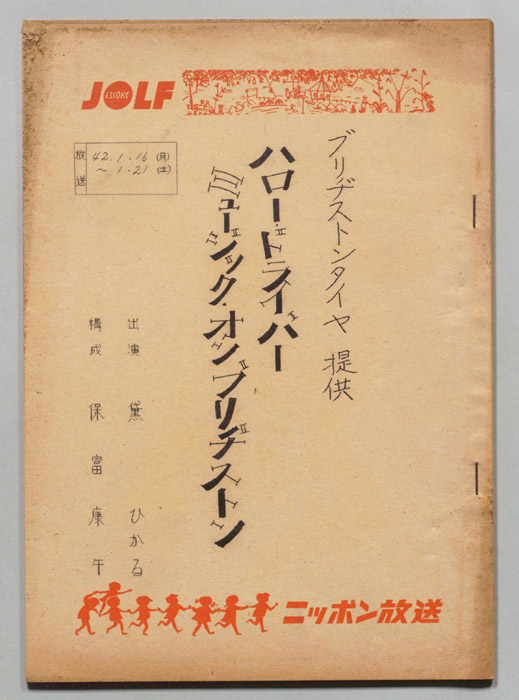 JOLF
1310KC
放送 42.1.16(月)
～1.21(土)
ブリヂストンタイヤ 提供
ハロー・ドライバー
ミュージック・オン・ブリヂストン
出演 黛 ひかる
構成 保富康午
ニッポン放送